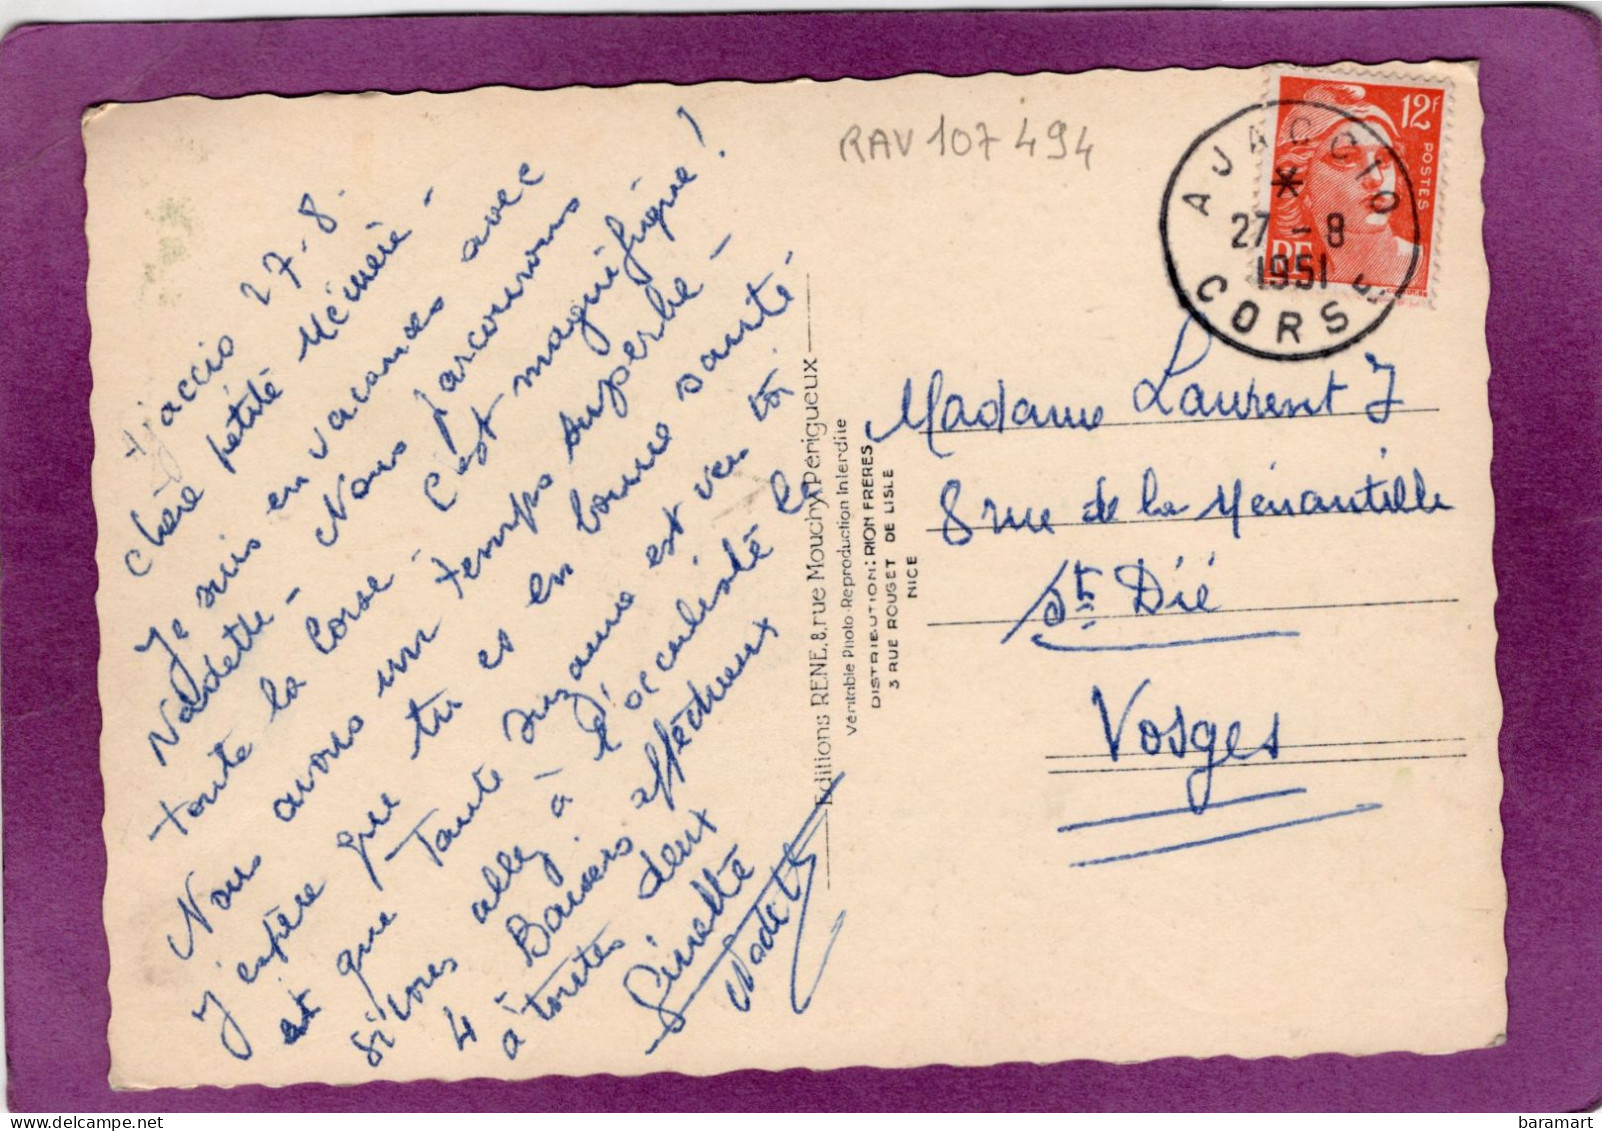 Ajaccio 27-8.
Chère petite Mémère -
Je suis en vacances avec
Nadette - Nous parcourons
toute la Corse - C'est magnifique !
Nous avons un temps superbe -
J'espère que tu es en bonne santé -
et que Tante Suzanne est ven toi
si vous allez à l'occuliste le
4 Baisers affectueux
à toutes deux
Ginette
Nadette
RAV 107 494
12F
POSTES
RF
AJACCIO
*
27 - 8
1951
CORSE
Editions RENE, 8, rue Mouchy, Périgueux
Véritable Photo - Reproduction Interdite
DISTRIBUTION: RION FRERES
3 RUE ROUGET DE LISLE
NICE
Madame Laurent J
8 rue de la Ménantille
St Dié
Vosges
delcampe.net
baramart